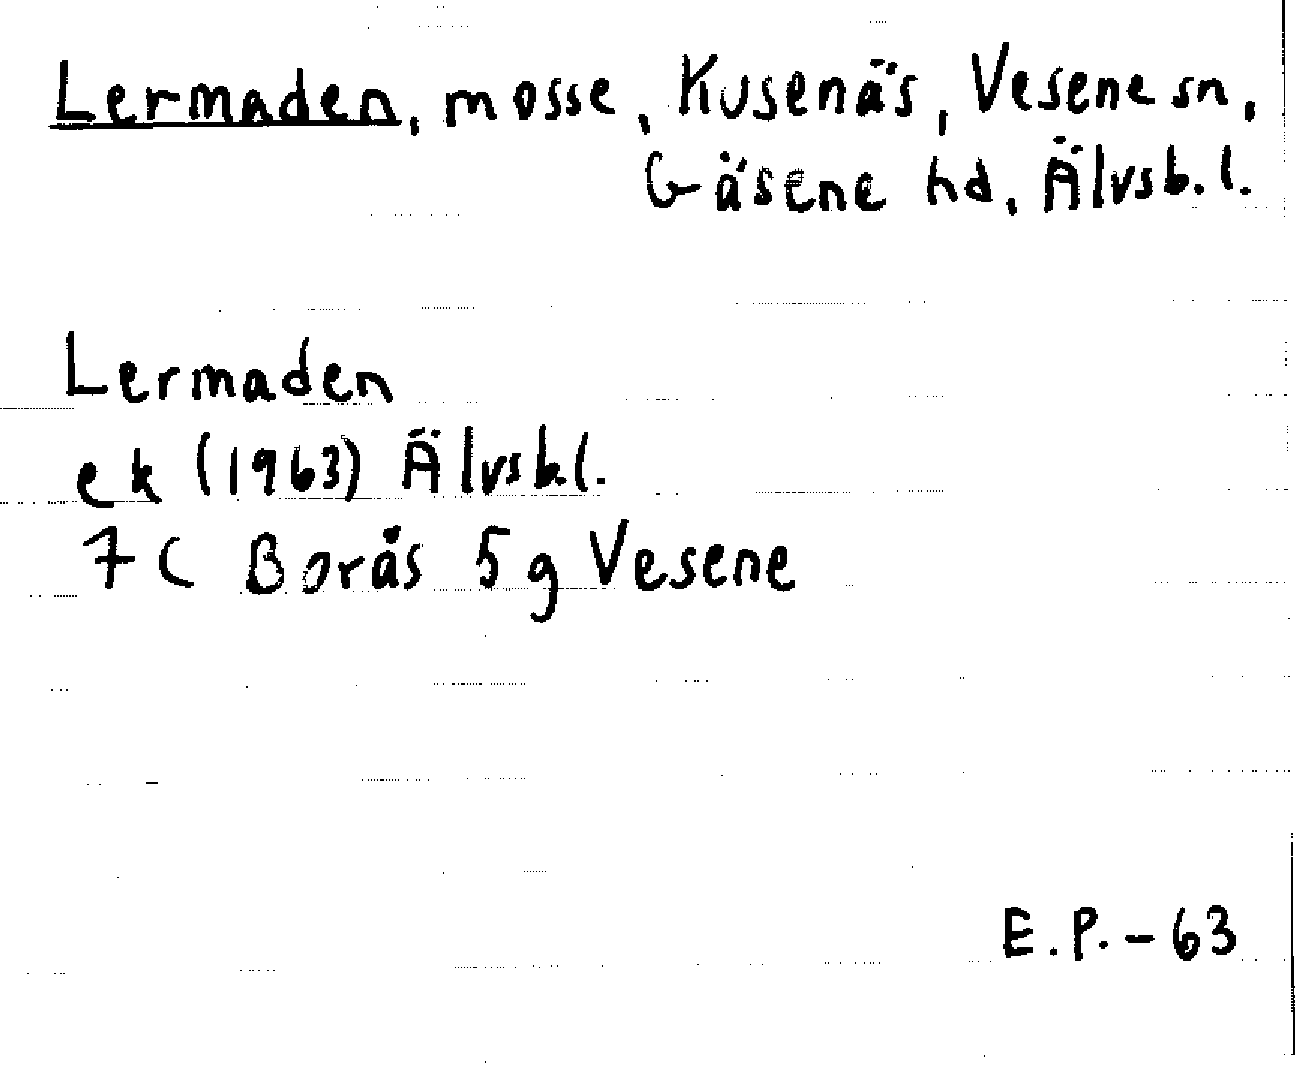 Lermaden, mosse, Kusenäs, Vesene sn,
Gäsene hd, Älvsb.l.
Lermaden
ek (1963) Älvsb.l.
7C Borås 5g Vesene
E.P.-63